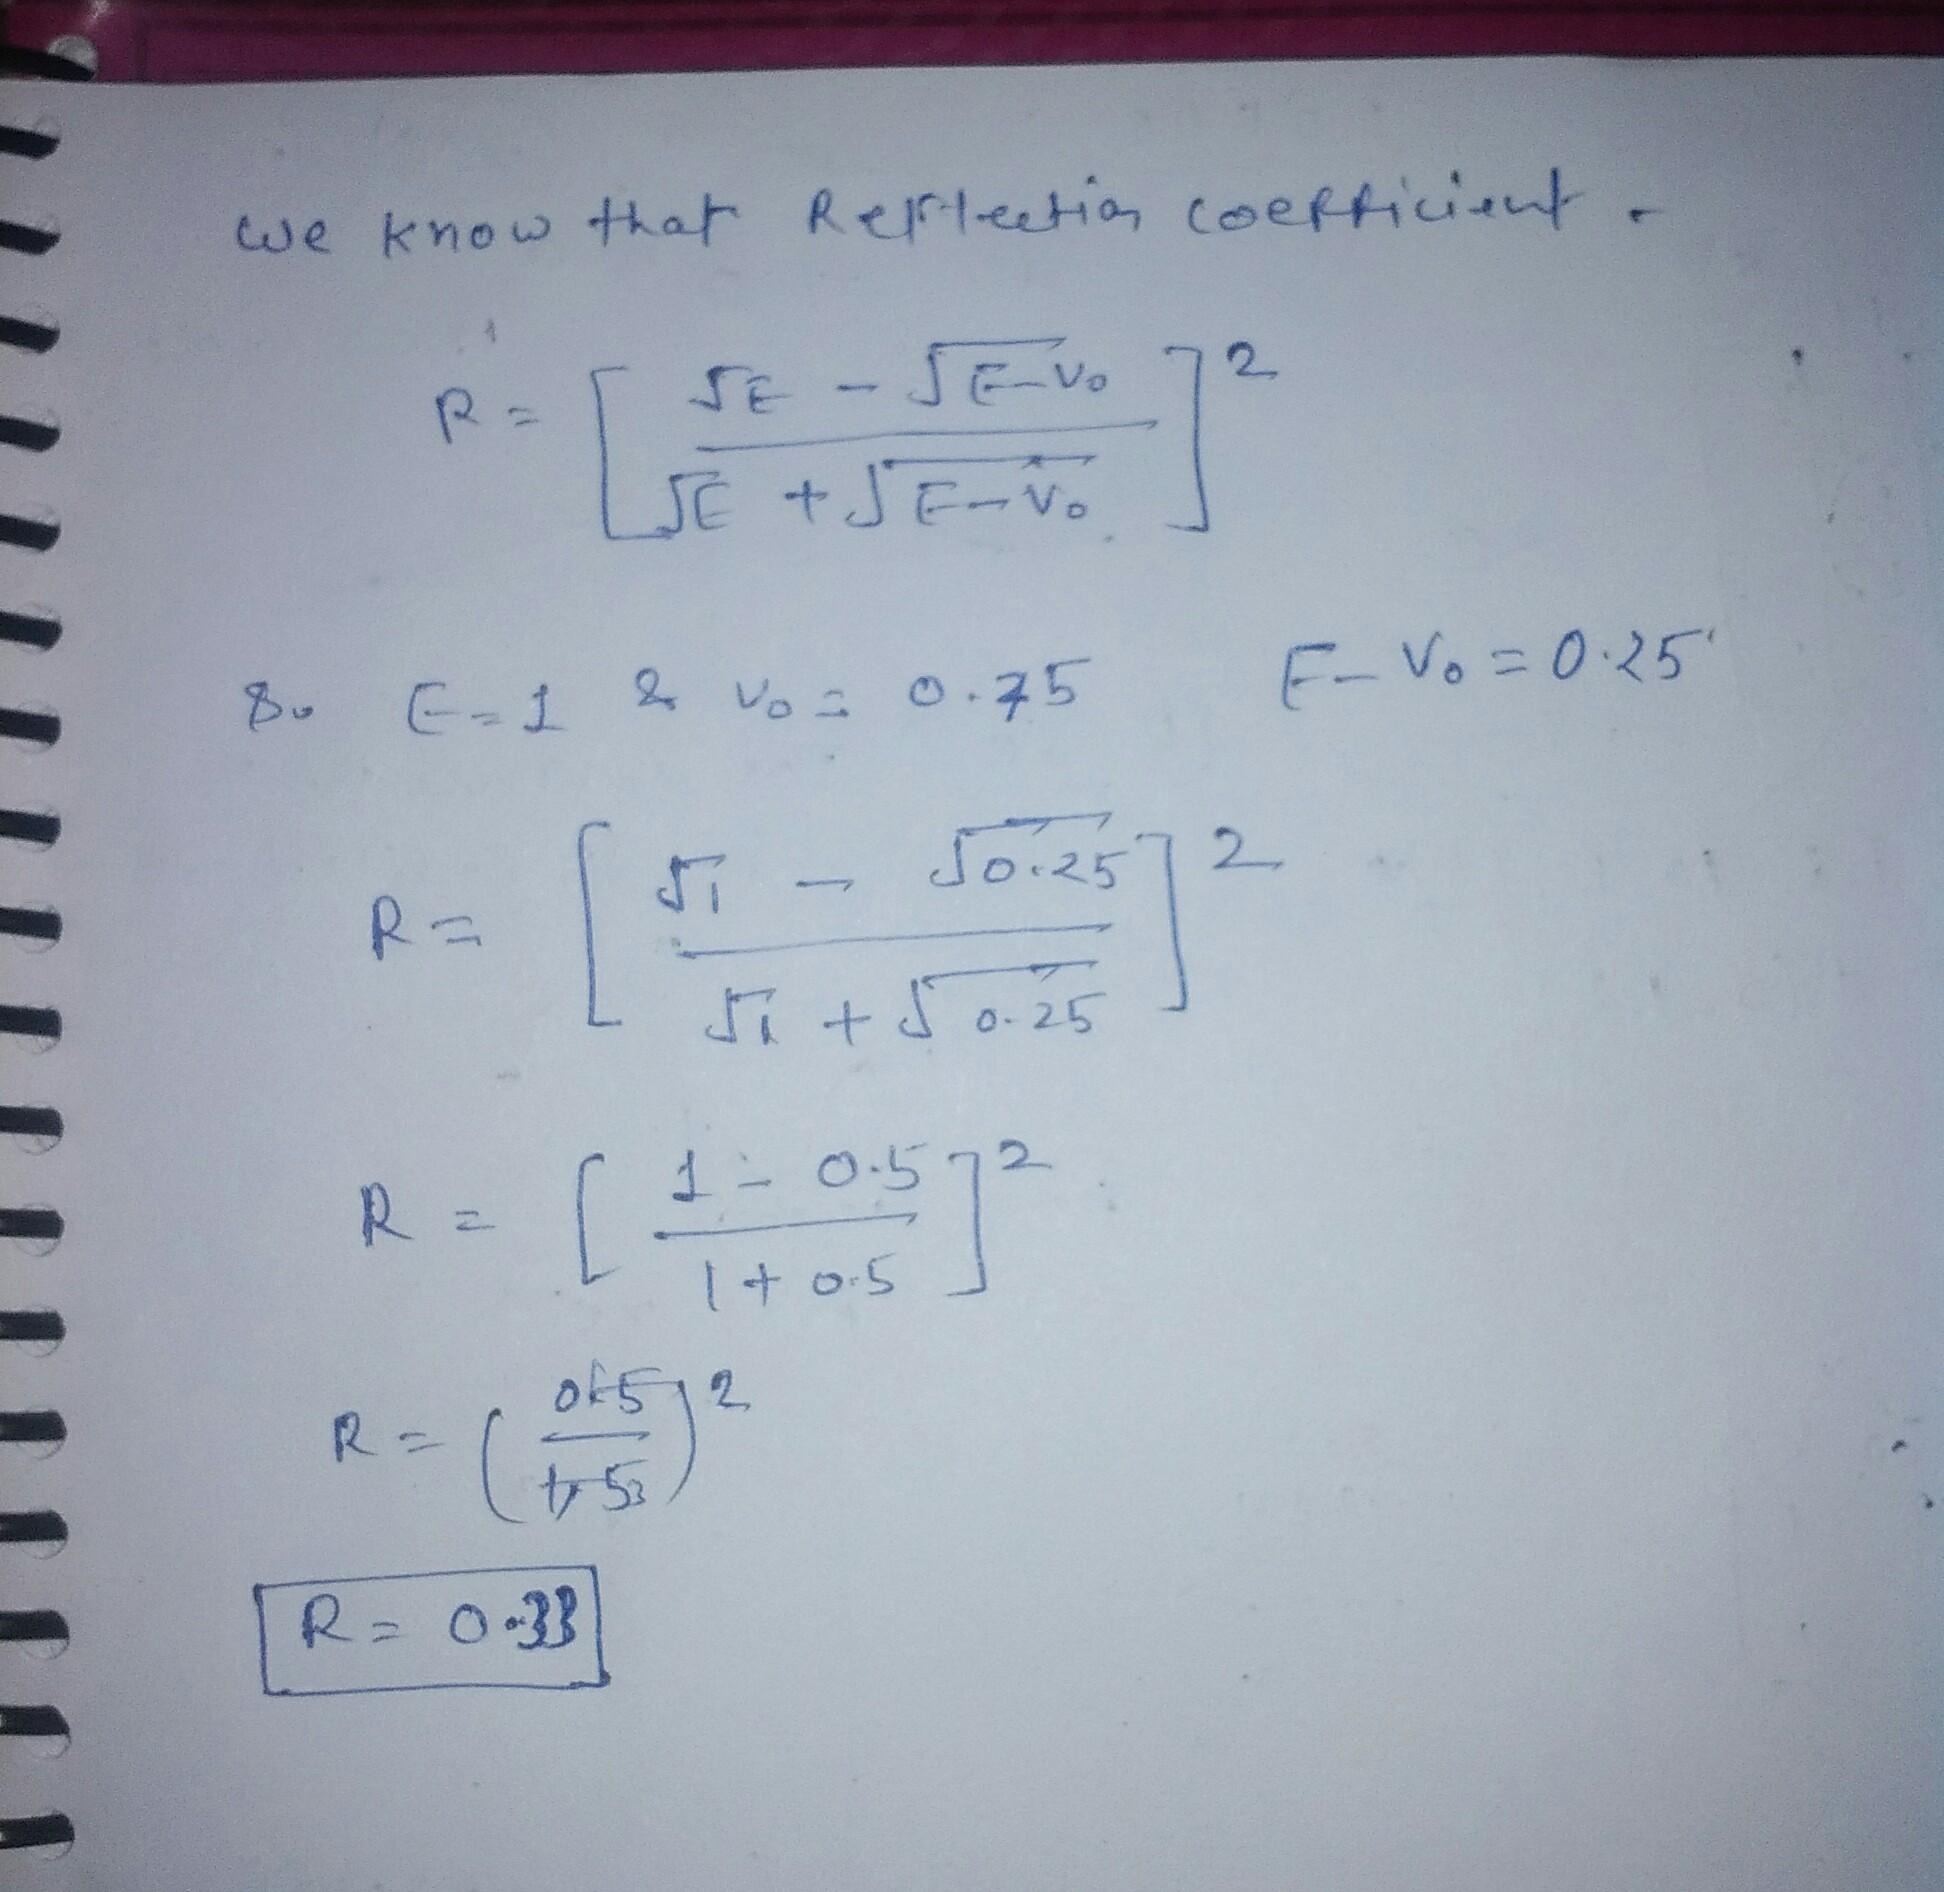 We know that Reflection coefficient.
R = [ √E - √E-V₀ / √E + √E-V₀ ]²
So E = 1 & V₀ = 0.75 E - V₀ = 0.25
R = [ √1 - √0.25 / √1 + √0.25 ]²
R = [ 1 - 0.5 / 1 + 0.5 ]²
R = ( 0.5 / 1.5 )²
R = 0.33